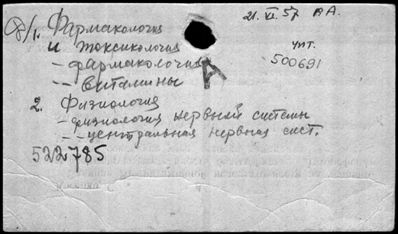 21. XI. 57 ВА.
1. Фармакология
и токсикология
- фармакология
-- витамины
чит.
500691
2. Физиология
- физиология нервной системы
-- центральная нервная сист.
522785